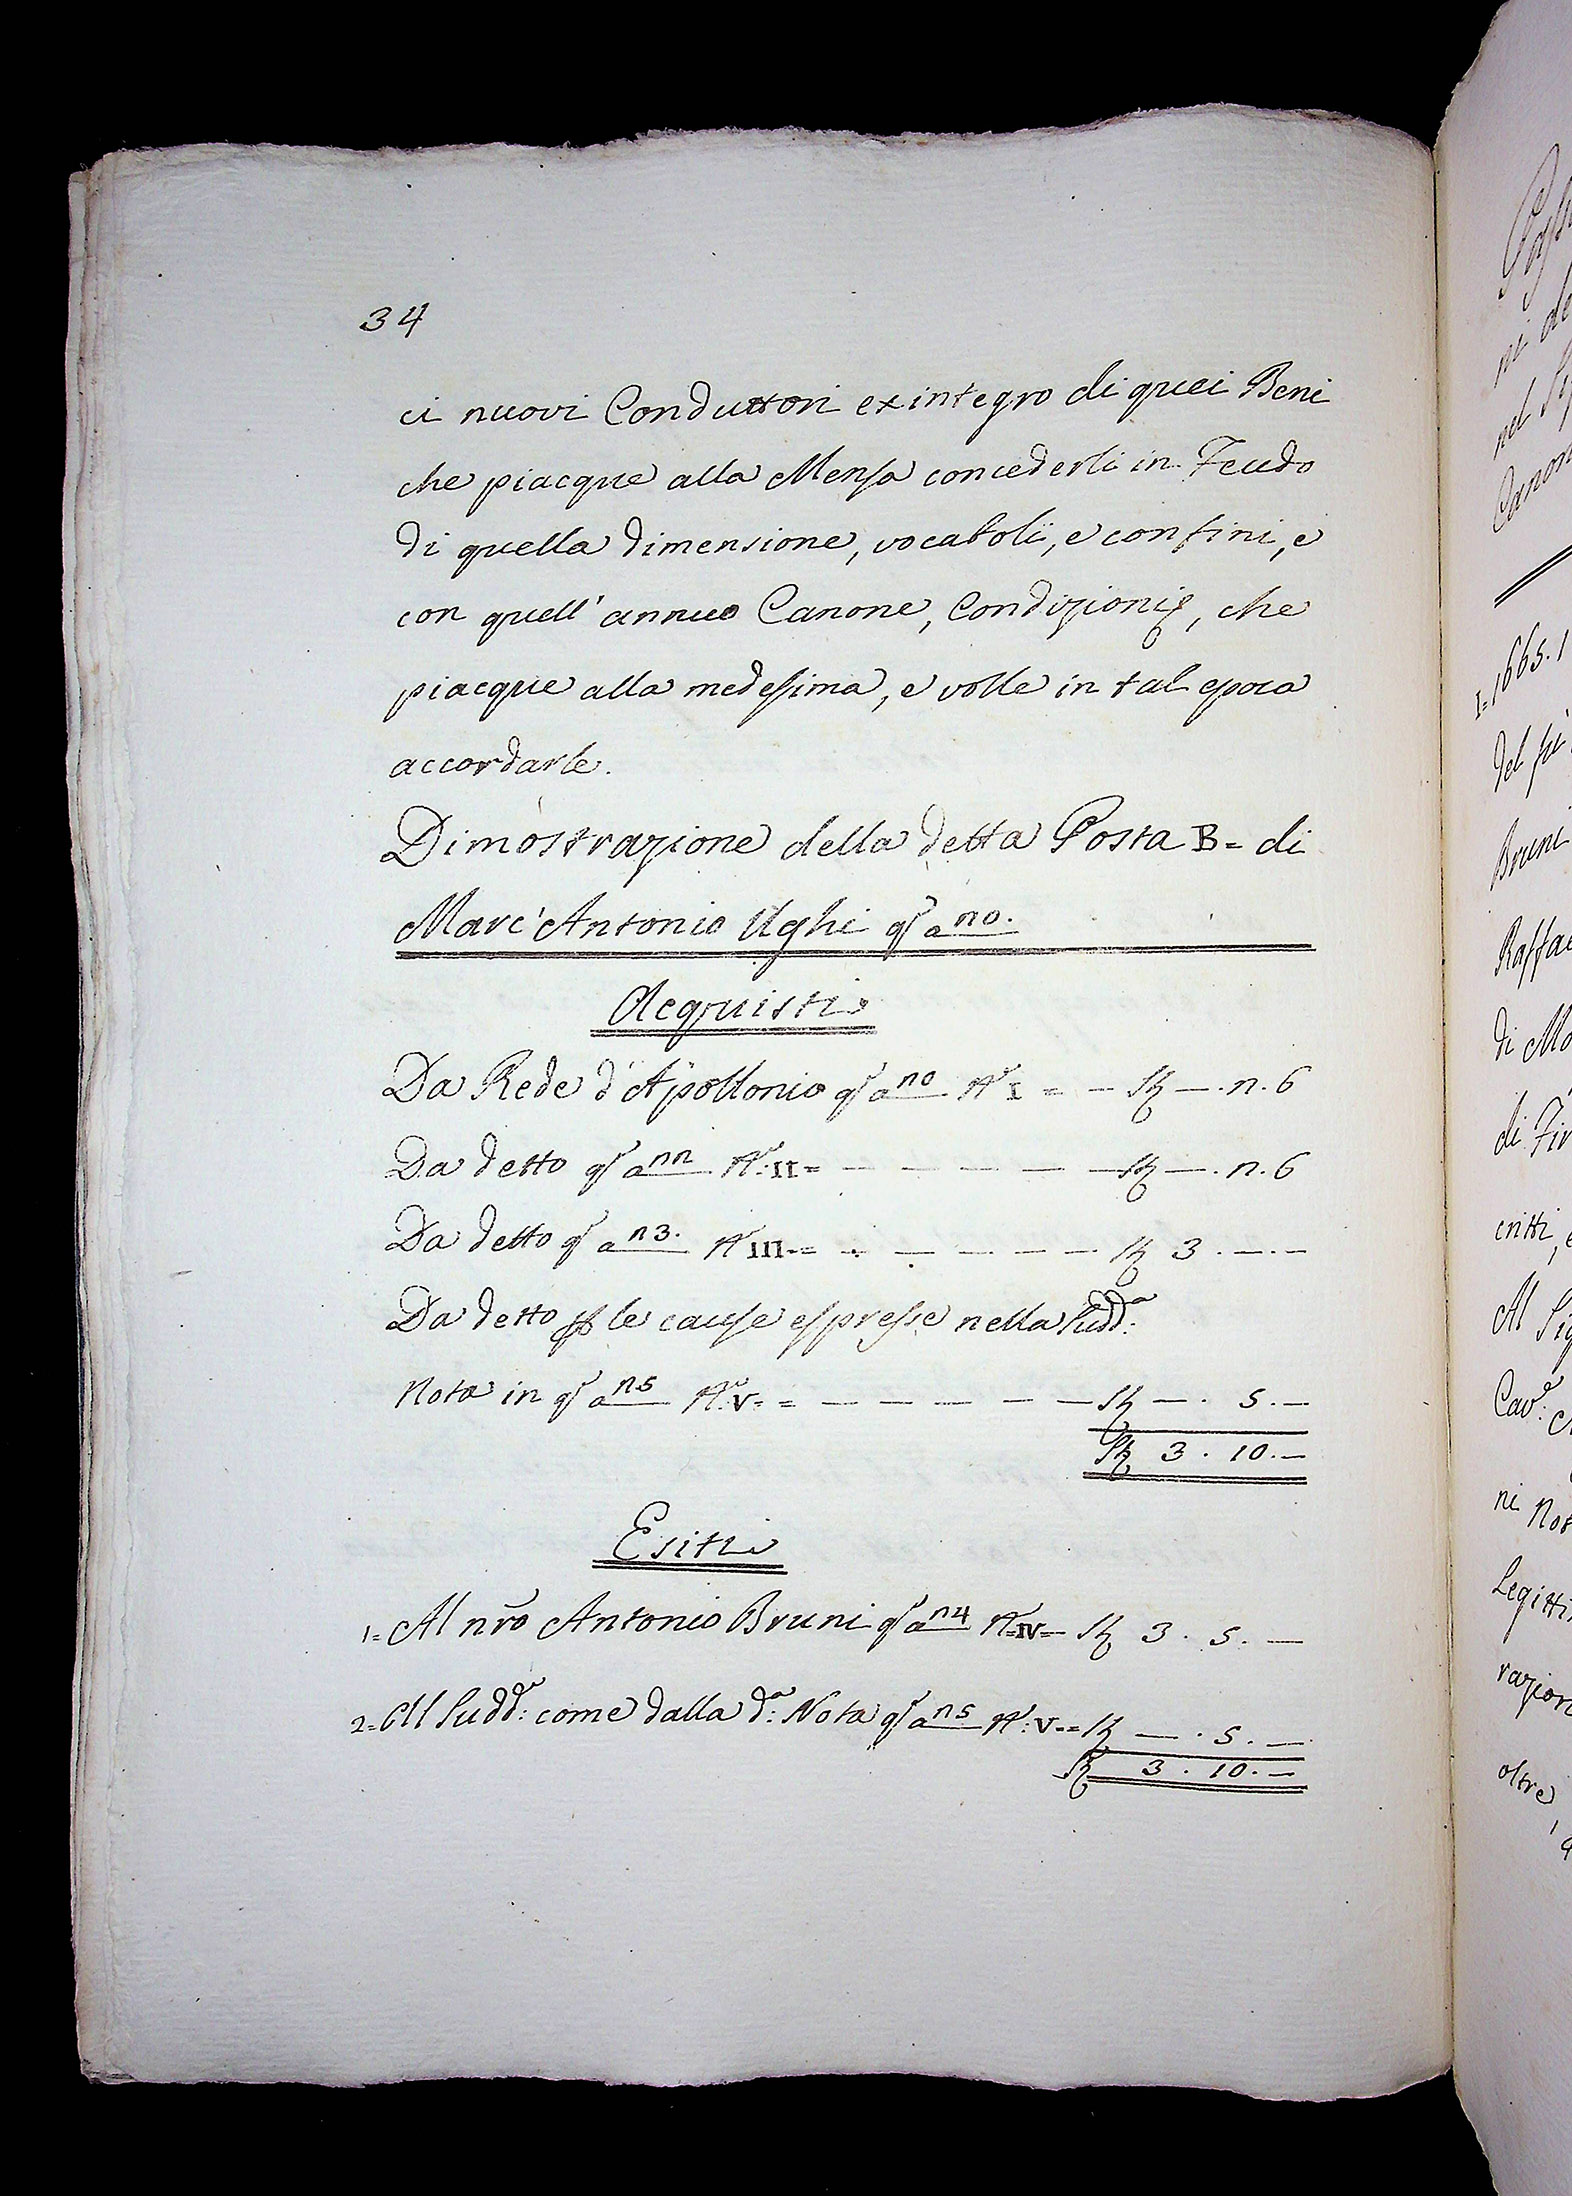 34
ci nuovi Conduttori ex integro di quei Beni
che piacque alla Mensa concederli in Feudo
di quella dimensione, vocaboli, e confini, e
con quell' annuo Canone, Condizioni, che
piacque alla medesima, e volle in tal epoca
accordarle.
Dimostrazione della detta Posta B= di
Marc' Antonio Ughi qᵗ a no.
Acquisti
Da Rede d'Apollonio qᵗ a no Nº I = — — . n. 6
Da detto qᵗ a nn Nº: II = — — — — — — . n. 6
Da detto qᵗ a n3. Nº III = — — — — — 3 . — . —
Da detto p le cause espresse nella Sudd:ᵃ
Nota in qᵗ a n5 Nº. V. = — — — — — — . 5. —
3 . 10. —
Esiti
1= Al nr̃o Antonio Bruni qᵗ a n4 Nº=IV= 3 . 5. —
2= Al Sudd:º come dalla d:ᵃ Nota qᵗ a n5 Nº: V.= — . 5. —
3 . 10. —
ni de
nel
Canon
I= 1665. 1
del
Bruni
Raffae
di Mo
di Fir
critti, e
Al Sig
Cav:ᵉ
ni Not
Legitti
razion
oltre